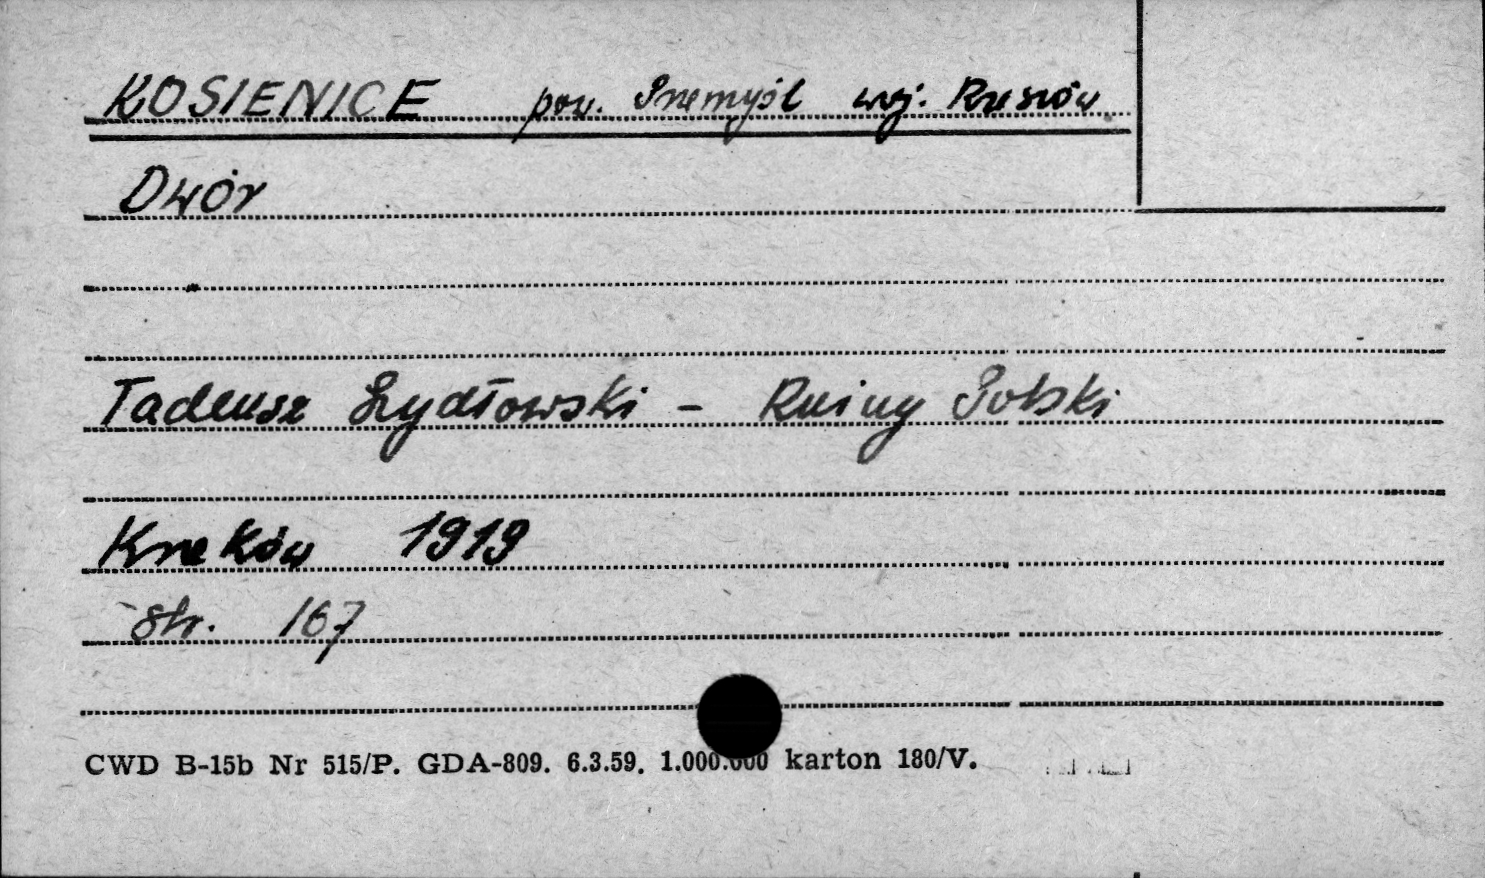 KOSIENICE pow. Przemyśl woj. Rzeszów
Dwór
Tadeusz Szydłowski - Ruiny Polski
Kraków 1919
str. 167
CWD B-15b Nr 515/P. GDA-809. 6.3.59. 1.000.000 karton 180/V.